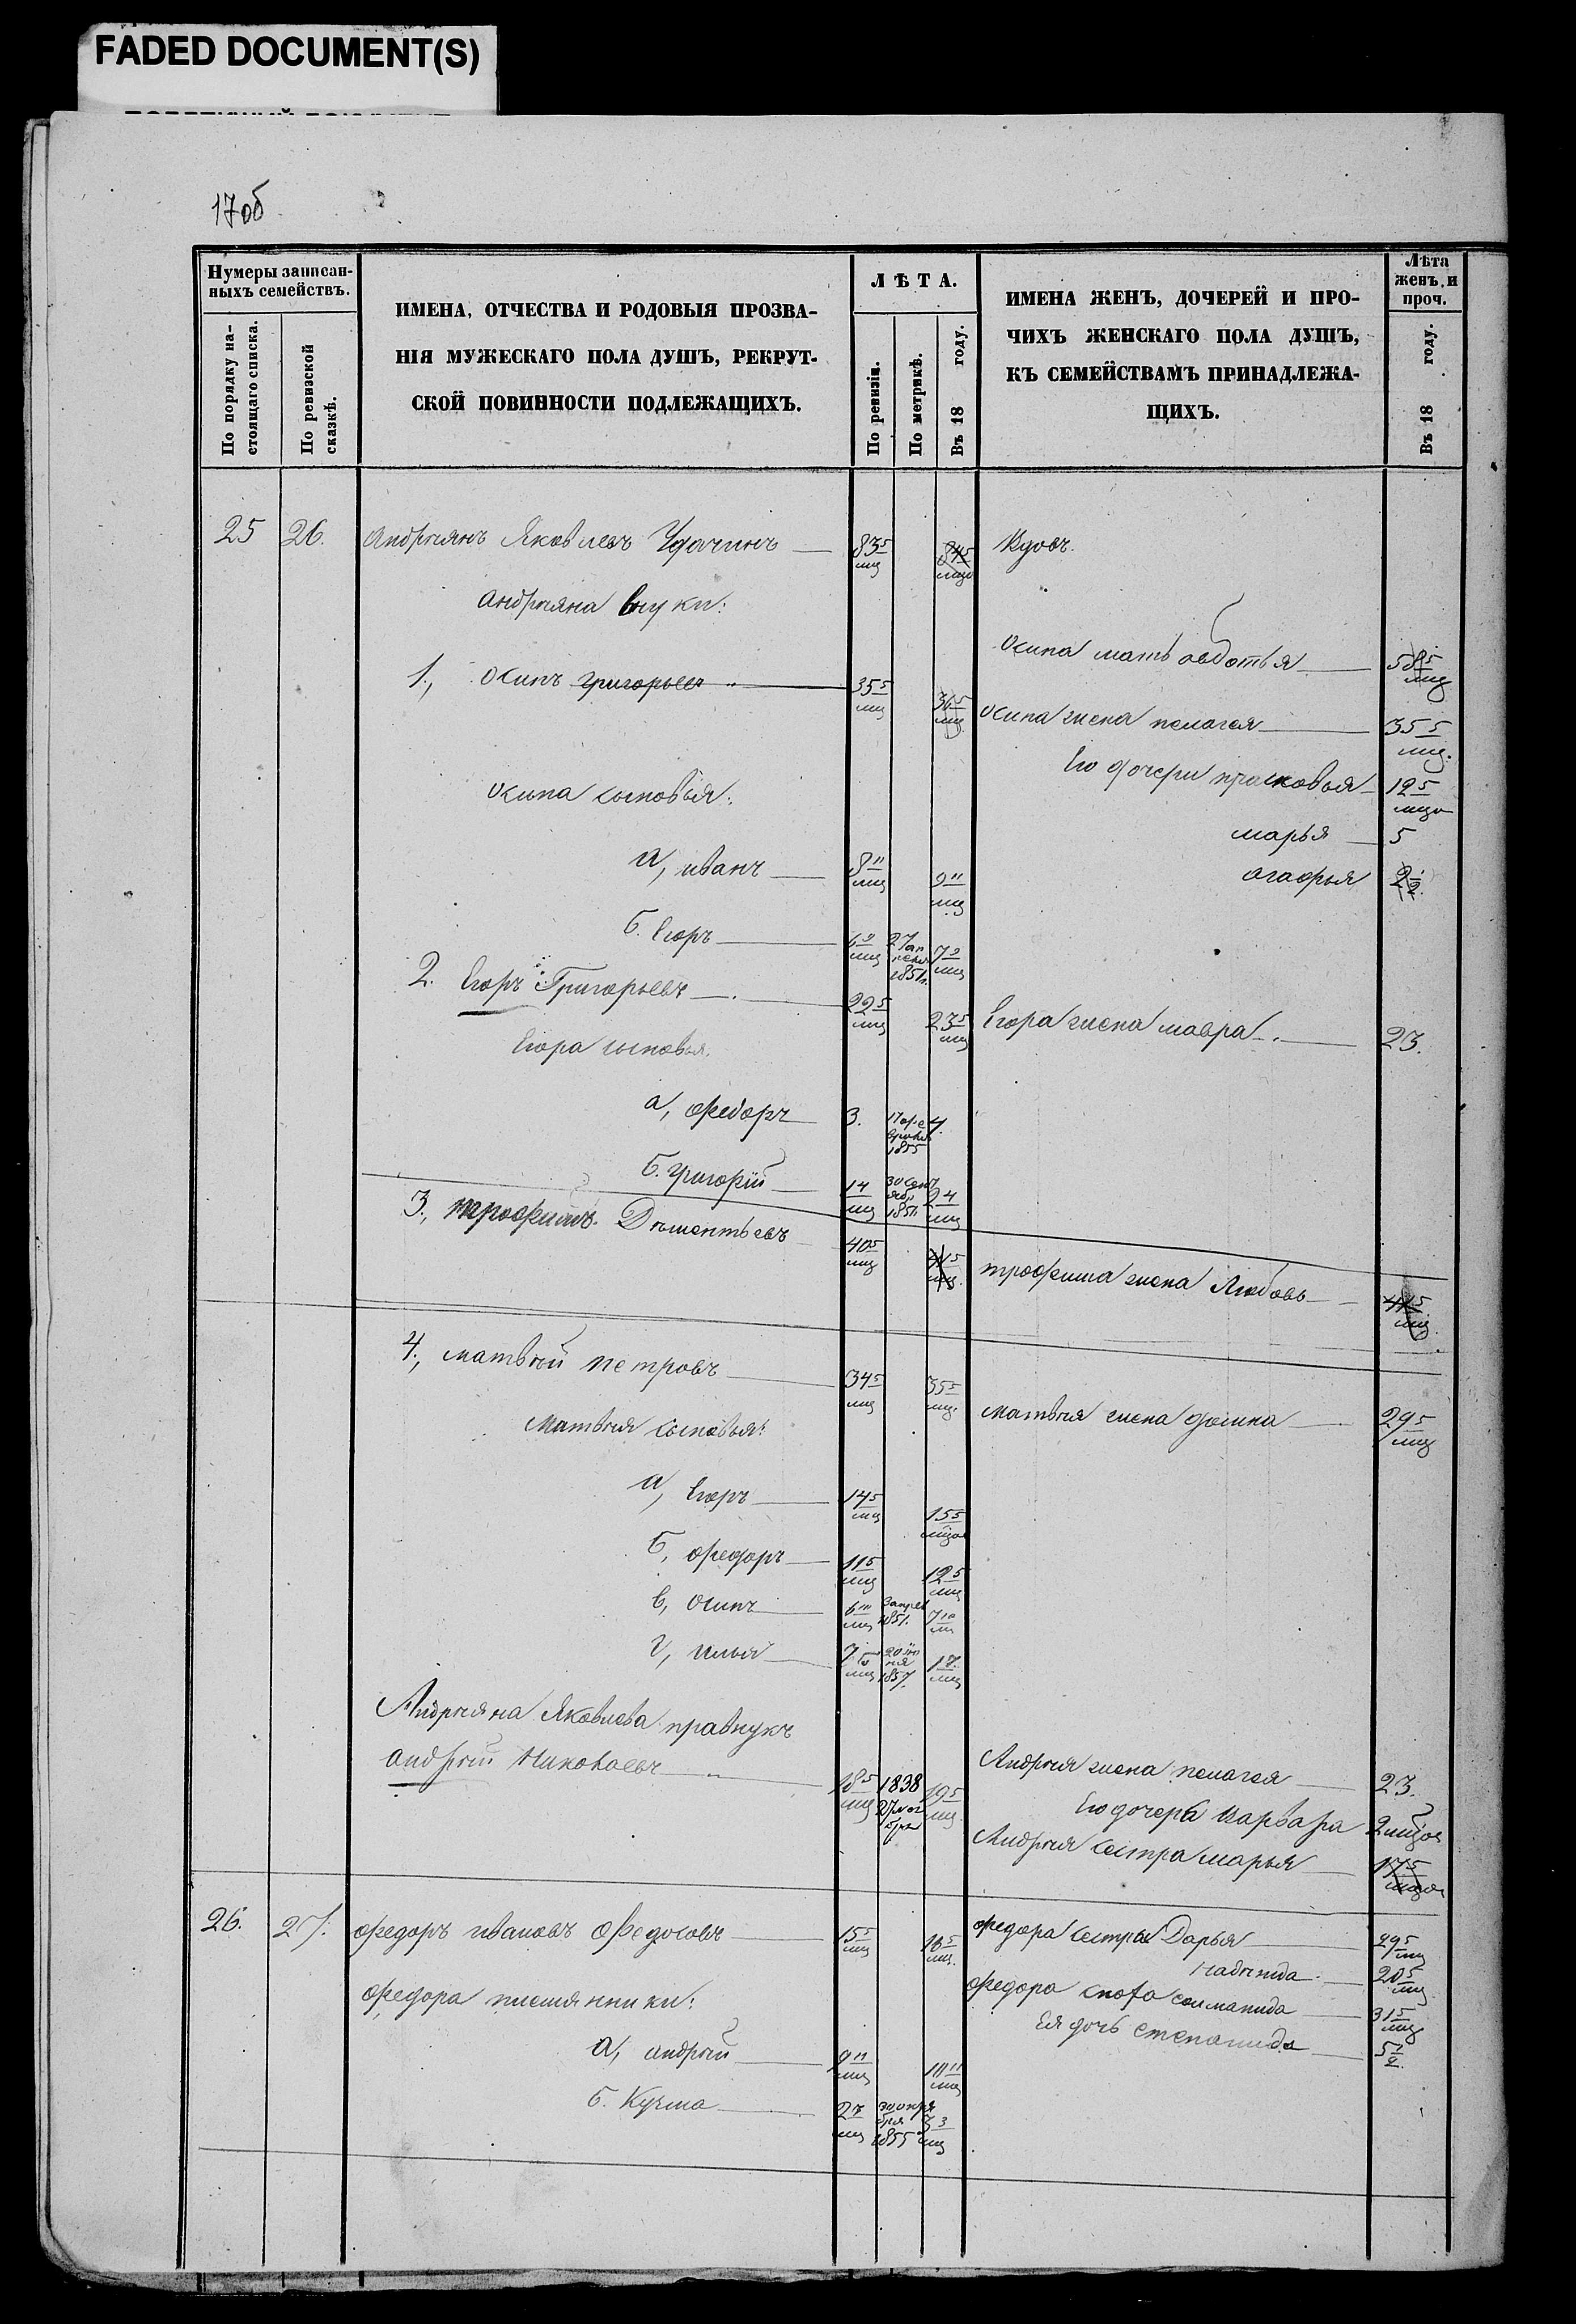 FADED DOCUMENT(S)
17об
Нумеры записан-
ныхъ семействъ.
По порядку на-
стоящаго списка.
По ревизской
сказкѣ.
ИМЕНА, ОТЧЕСТВА И РОДОВЫЯ ПРОЗВА-
НІЯ МУЖЕСКАГО ПОЛА ДУШЪ, РЕКРУТ-
СКОЙ ПОВИННОСТИ ПОДЛЕЖАЩИХЪ.
ЛѢТА.
По ревизіи.
По метрикѣ.
Въ 18 году.
ИМЕНА ЖЕНЪ, ДОЧЕРЕЙ И ПРО-
ЧИХЪ ЖЕНСКАГО ПОЛА ДУШЪ,
КЪ СЕМЕЙСТВАМЪ ПРИНАДЛЕЖА-
ЩИХЪ.
Лѣта
женъ, и
проч.
Въ 18 году.
25 26. Андриянъ Яковлевъ Удачинъ 83 5/мц 84 5/мцо Вдовъ.
Андрияна внуки:
Осипа мать авдотья 58 5/мц
1., Осипъ григорьевъ 35 5/мц 36 5/мц
Осипа жена пелагея 35 5/мц.
Его дочери прасковья 12 5/мцо
Осипа сыновья:
марья 5
а, иванъ 8 11/мц 9 11/мц
агафья 2 1/2
б. Егоръ 6 9/мц 1851г. 7 9/мц
2. Егоръ Григорьевъ 22 5/мц 23 5/мц Егора жена мавра 23.
Егора сыновья.
а, федоръ 3. 17 фе
враля
1855 4.
б. григорій 14/мц 30 сент 24/мц
3., трофимъ Дементьевъ 40 5/мц 41 5/мц трофима жена Любовь 41 5/мц
4., матвѣй петровъ 34 5/мц 35 5/мц.
матвѣя сыновья: матвѣя жена фомина 29 5/мц
а, Егоръ 14 5/мц 15 5/мцов
б, федоръ 11 5/мц 12 5/мц
в, осипъ 6 10/мц 1851. 7 10/мц
г, илья 1857.
Андрияна Яковлева правнукъ
андрѣй Николаевъ 18 5/мц 1838
27 ноя
бря 19 5/мц
Андрѣя жена пелагея 23.
Его дочерь Варвара 2 мцов
Андрѣя сестра марья 17 5/мцов
26. 27. федоръ ивановъ Федосовъ 15 5/мц 16 5/мц. федора сестры Дарья 22 5/мц
надежда 20 5/мц
федора племянники: федора сноха соломанида 31 5/мц
Ея дочь степанида 5 1/2.
а, андрѣй 9 11/мц 10 11/мц
б. Кузма 2 7/мц 30 октя
бря
1855 3 3/мц